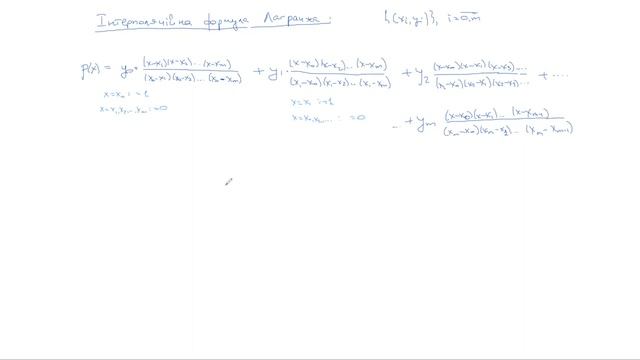 Інтерполяційна формула Лагранжа: {(xᵢ, yᵢ)}, i=0,m
p(x) = y₀ · (x-x₁)(x-x₂)...(x-xₘ) / (x₀-x₁)(x₀-x₂)...(x₀-xₘ) + y₁ · (x-x₀)(x-x₂)...(x-xₘ) / (x₁-x₀)(x₁-x₂)...(x₁-xₘ) + y₂ (x-x₀)(x-x₁)(x-x₃)... / (x₂-x₀)(x₂-x₁)(x₂-x₃)... + ....
x=x₀ : =1
x=x₁,x₂,...,xₘ : =0
x=x₁ : =1
x=x₀,x₂,... : =0
... + yₘ (x-x₀)(x-x₁)...(x-xₘ₋₁) / (xₘ-x₀)(xₘ-x₁)...(xₘ-xₘ₋₁)